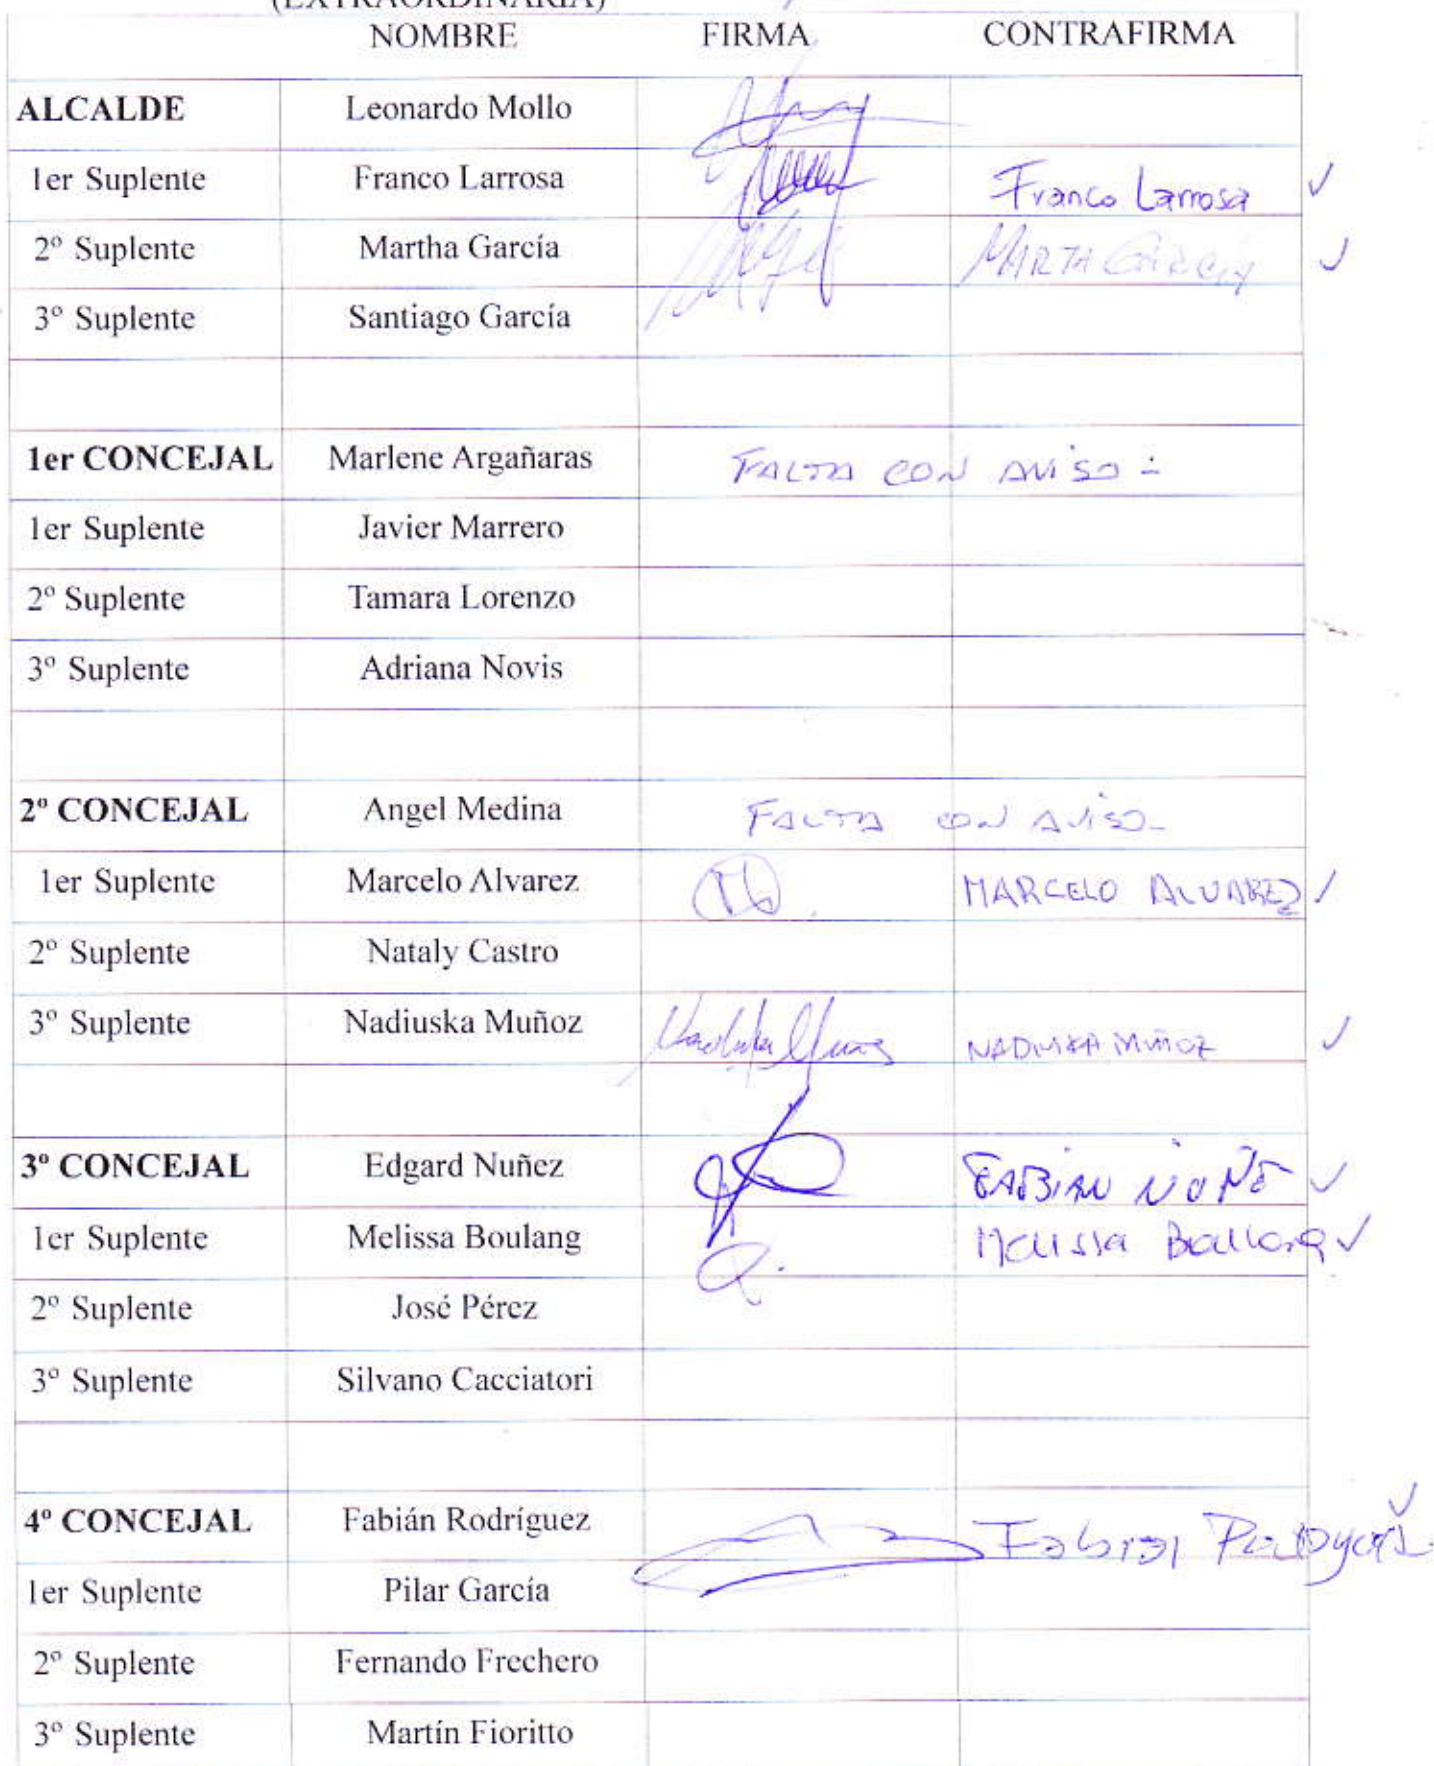 (EXTRAORDINARIA)
NOMBRE FIRMA CONTRAFIRMA
ALCALDE Leonardo Mollo
1er Suplente Franco Larrosa Franco Larrosa
2º Suplente Martha García MARTA GARCIA
3º Suplente Santiago García
1er CONCEJAL Marlene Argañaras FALTA CON AVISO -
1er Suplente Javier Marrero
2º Suplente Tamara Lorenzo
3º Suplente Adriana Novis
2º CONCEJAL Angel Medina FALTA CON AVISO-
1er Suplente Marcelo Alvarez MARCELO ALVAREZ
2º Suplente Nataly Castro
3º Suplente Nadiuska Muñoz NADIUSKA MUÑOZ
3º CONCEJAL Edgard Nuñez FABIAN NUÑE
1er Suplente Melissa Boulang Melissa
2º Suplente José Pérez
3º Suplente Silvano Cacciatori
4º CONCEJAL Fabián Rodríguez
1er Suplente Pilar García
2º Suplente Fernando Frechero
3º Suplente Martín Fioritto